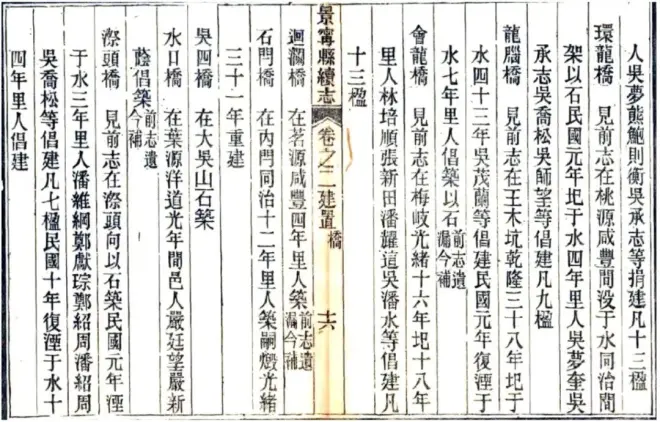 人吳夢熊鮑則衡吳承志等捐建凡十三楹
環龍橋 見前志在桃源咸豐間沒于水同治間
架以石民國元年圮于水四年里人吳夢奎吳
承志吳喬松吳師望等倡建凡九楹
龍腦橋 見前志在王木坑乾隆三十八年圮于
水四十三年吳茂蘭等倡建民國元年復湮于
水七年里人倡築以石前志遺漏今補
會龍橋 見前志在梅岐光緒十六年圮十八年
里人林培順張新田潘耀這吳潘水等倡建凡
十三楹
景寧縣續志 卷之二建置 橋 十六
迴瀾橋 在茗源咸豐四年里人築前志遺漏今補
石門橋 在內門同治十二年里人築嗣燬光緒
三十一年重建
吳四橋 在大吳山石築
水口橋 在葉源洋道光年間邑人嚴廷望嚴新
蔭倡築前志遺今補
漈頭橋 見前志在漈頭向以石築民國元年湮
于水三年里人潘維綱鄭獻琮鄭紹周潘紹周
吳喬松等倡建凡七楹民國十年復湮于水十
四年里人倡建